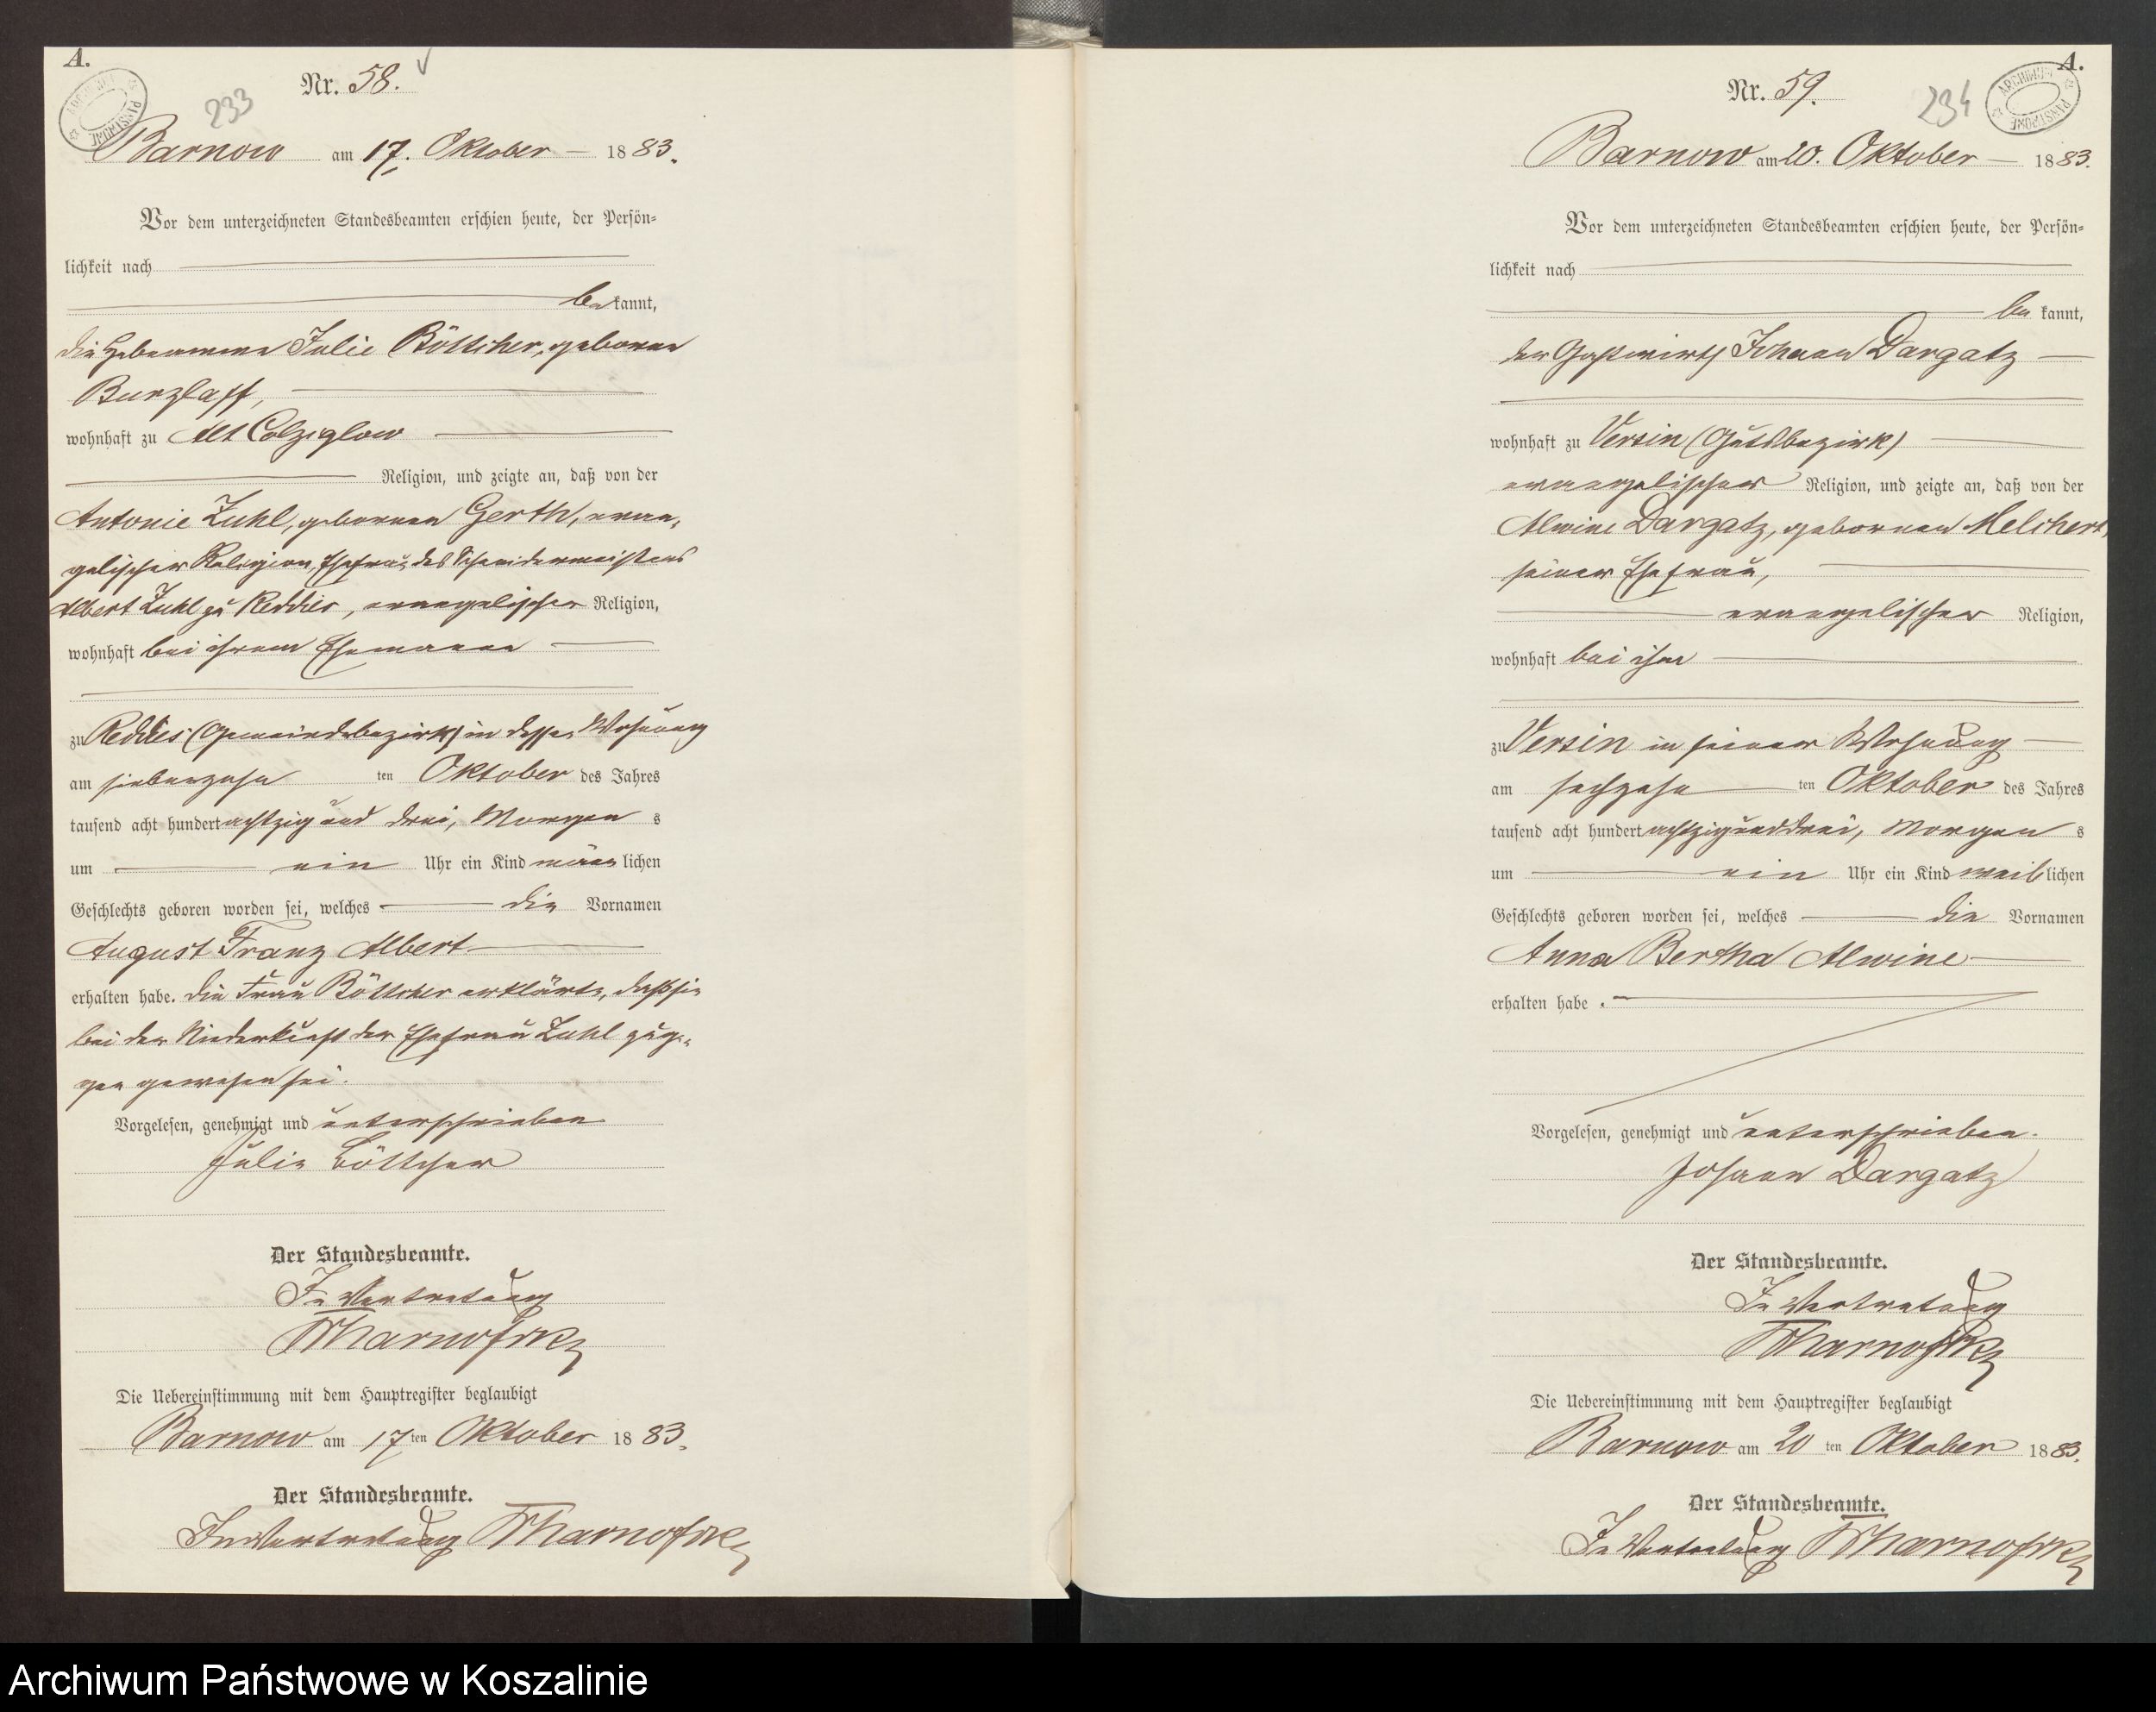 A.
Nr. 58.
233
Barnow am 17. Oktober 1883.
Vor dem unterzeichneten Standesbeamten erschien heute, der Persön-
lichkeit nach
bekannt,
die Hebeamme Julie Böttcher, geborene
Burzlaff,
wohnhaft zu Alt Colziglow
Religion, und zeigte an, daß von der
Antonie Zuhl, geborenen Gerth, evan-
gelischer Religion, Ehefrau des Schneidermeisters
Albert Zuhl zu Reddies, evangelischer Religion,
wohnhaft bei ihrem Ehemanne
zu Reddies (Gemeindebezirk) in dessen Wohnung
am siebenzehn ten Oktober des Jahres
tausend acht hundert achtzig und drei, Morgens
um ein Uhr ein Kind männlichen
Geschlechts geboren worden sei, welches die Vornamen
August Franz Albert
erhalten habe. Die Frau Böttcher erklärte, daß sie
bei der Niederkunft der Ehefrau Zuhl zuge-
gen gewesen sei.
Vorgelesen, genehmigt und unterschrieben
Julie Böttcher
Der Standesbeamte.
In Vertretung
Die Uebereinstimmung mit dem Hauptregister beglaubigt
Barnow am 17ten Oktober 1883.
Der Standesbeamte.
In Vertretung
A.
Nr. 59.
234
Barnow am 20. Oktober 1883.
Vor dem unterzeichneten Standesbeamten erschien heute, der Persön-
lichkeit nach
bekannt,
der Gastwirth Johann Dargatz
wohnhaft zu Versin (Gutsbezirk)
evangelischer Religion, und zeigte an, daß von der
Alwine Dargatz, geborenen Melchert,
seiner Ehefrau,
evangelischer Religion,
wohnhaft bei ihm
zu Versin in seiner Wohnung
am sechzehn ten Oktober des Jahres
tausend acht hundert achtzig und drei, Morgens
um ein Uhr ein Kind weiblichen
Geschlechts geboren worden sei, welches die Vornamen
Anna Bertha Alwine
erhalten habe.
Vorgelesen, genehmigt und unterschrieben.
Johann Dargatz
Der Standesbeamte.
In Vertretung
Die Uebereinstimmung mit dem Hauptregister beglaubigt
Barnow am 20 ten Oktober 1883.
Der Standesbeamte.
In Vertretung
Archiwum Państwowe w Koszalinie